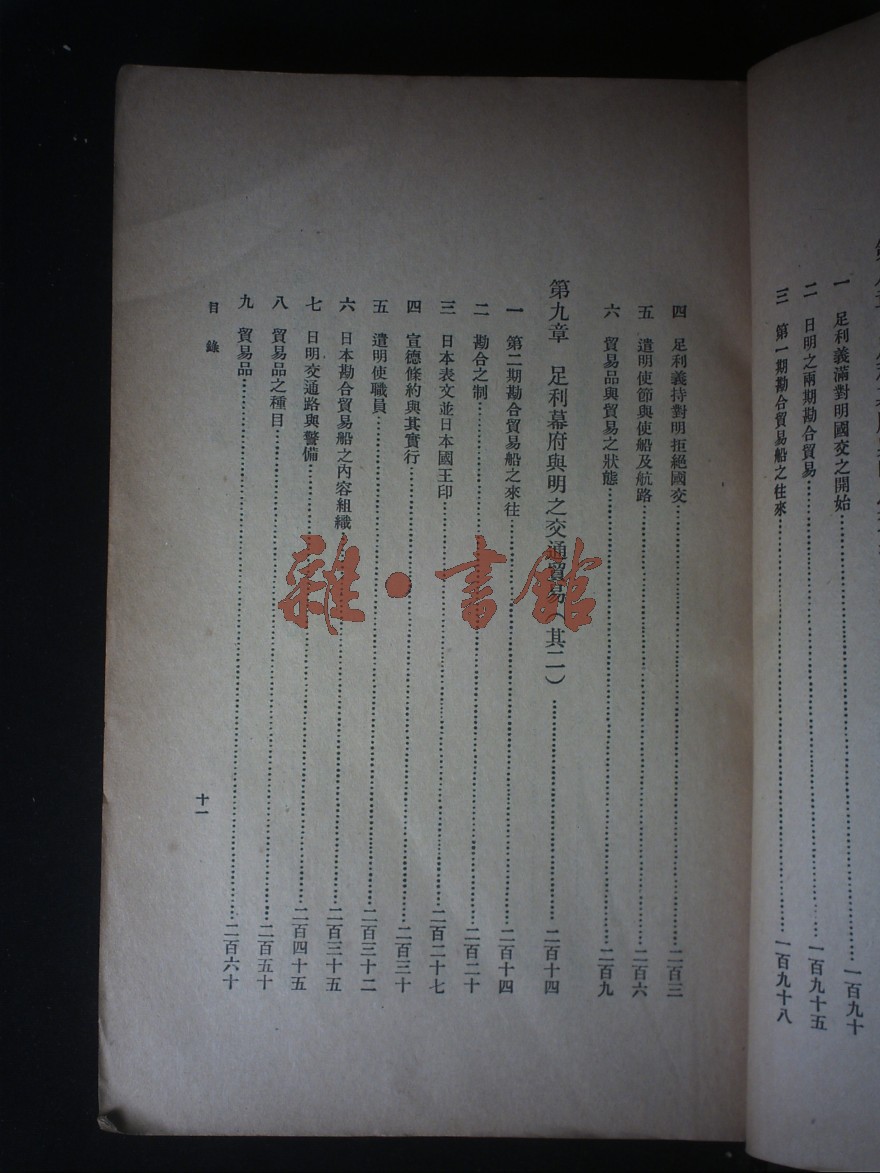 一　足利義滿對明國交之開始……一百九十
二　日明之兩期勘合貿易……一百九十五
三　第一期勘合貿易船之往來……一百九十八
四　足利義持對明拒絕國交……二百三
五　遣明使節與使船及航路……二百六
六　貿易品與貿易之狀態……二百九
第九章　足利幕府與明之交通貿易（其二）……二百十四
一　第二期勘合貿易船之來往……二百十四
二　勘合之制……二百二十
三　日本表文並日本國王印……二百二十七
四　宣德條約與其實行……二百三十
五　遣明使職員……二百三十二
六　日本勘合貿易船之內容組織……二百三十五
七　日明交通路與警備……二百四十五
八　貿易品之種目……二百五十
九　貿易品……二百六十
目錄
十一
雜·書館